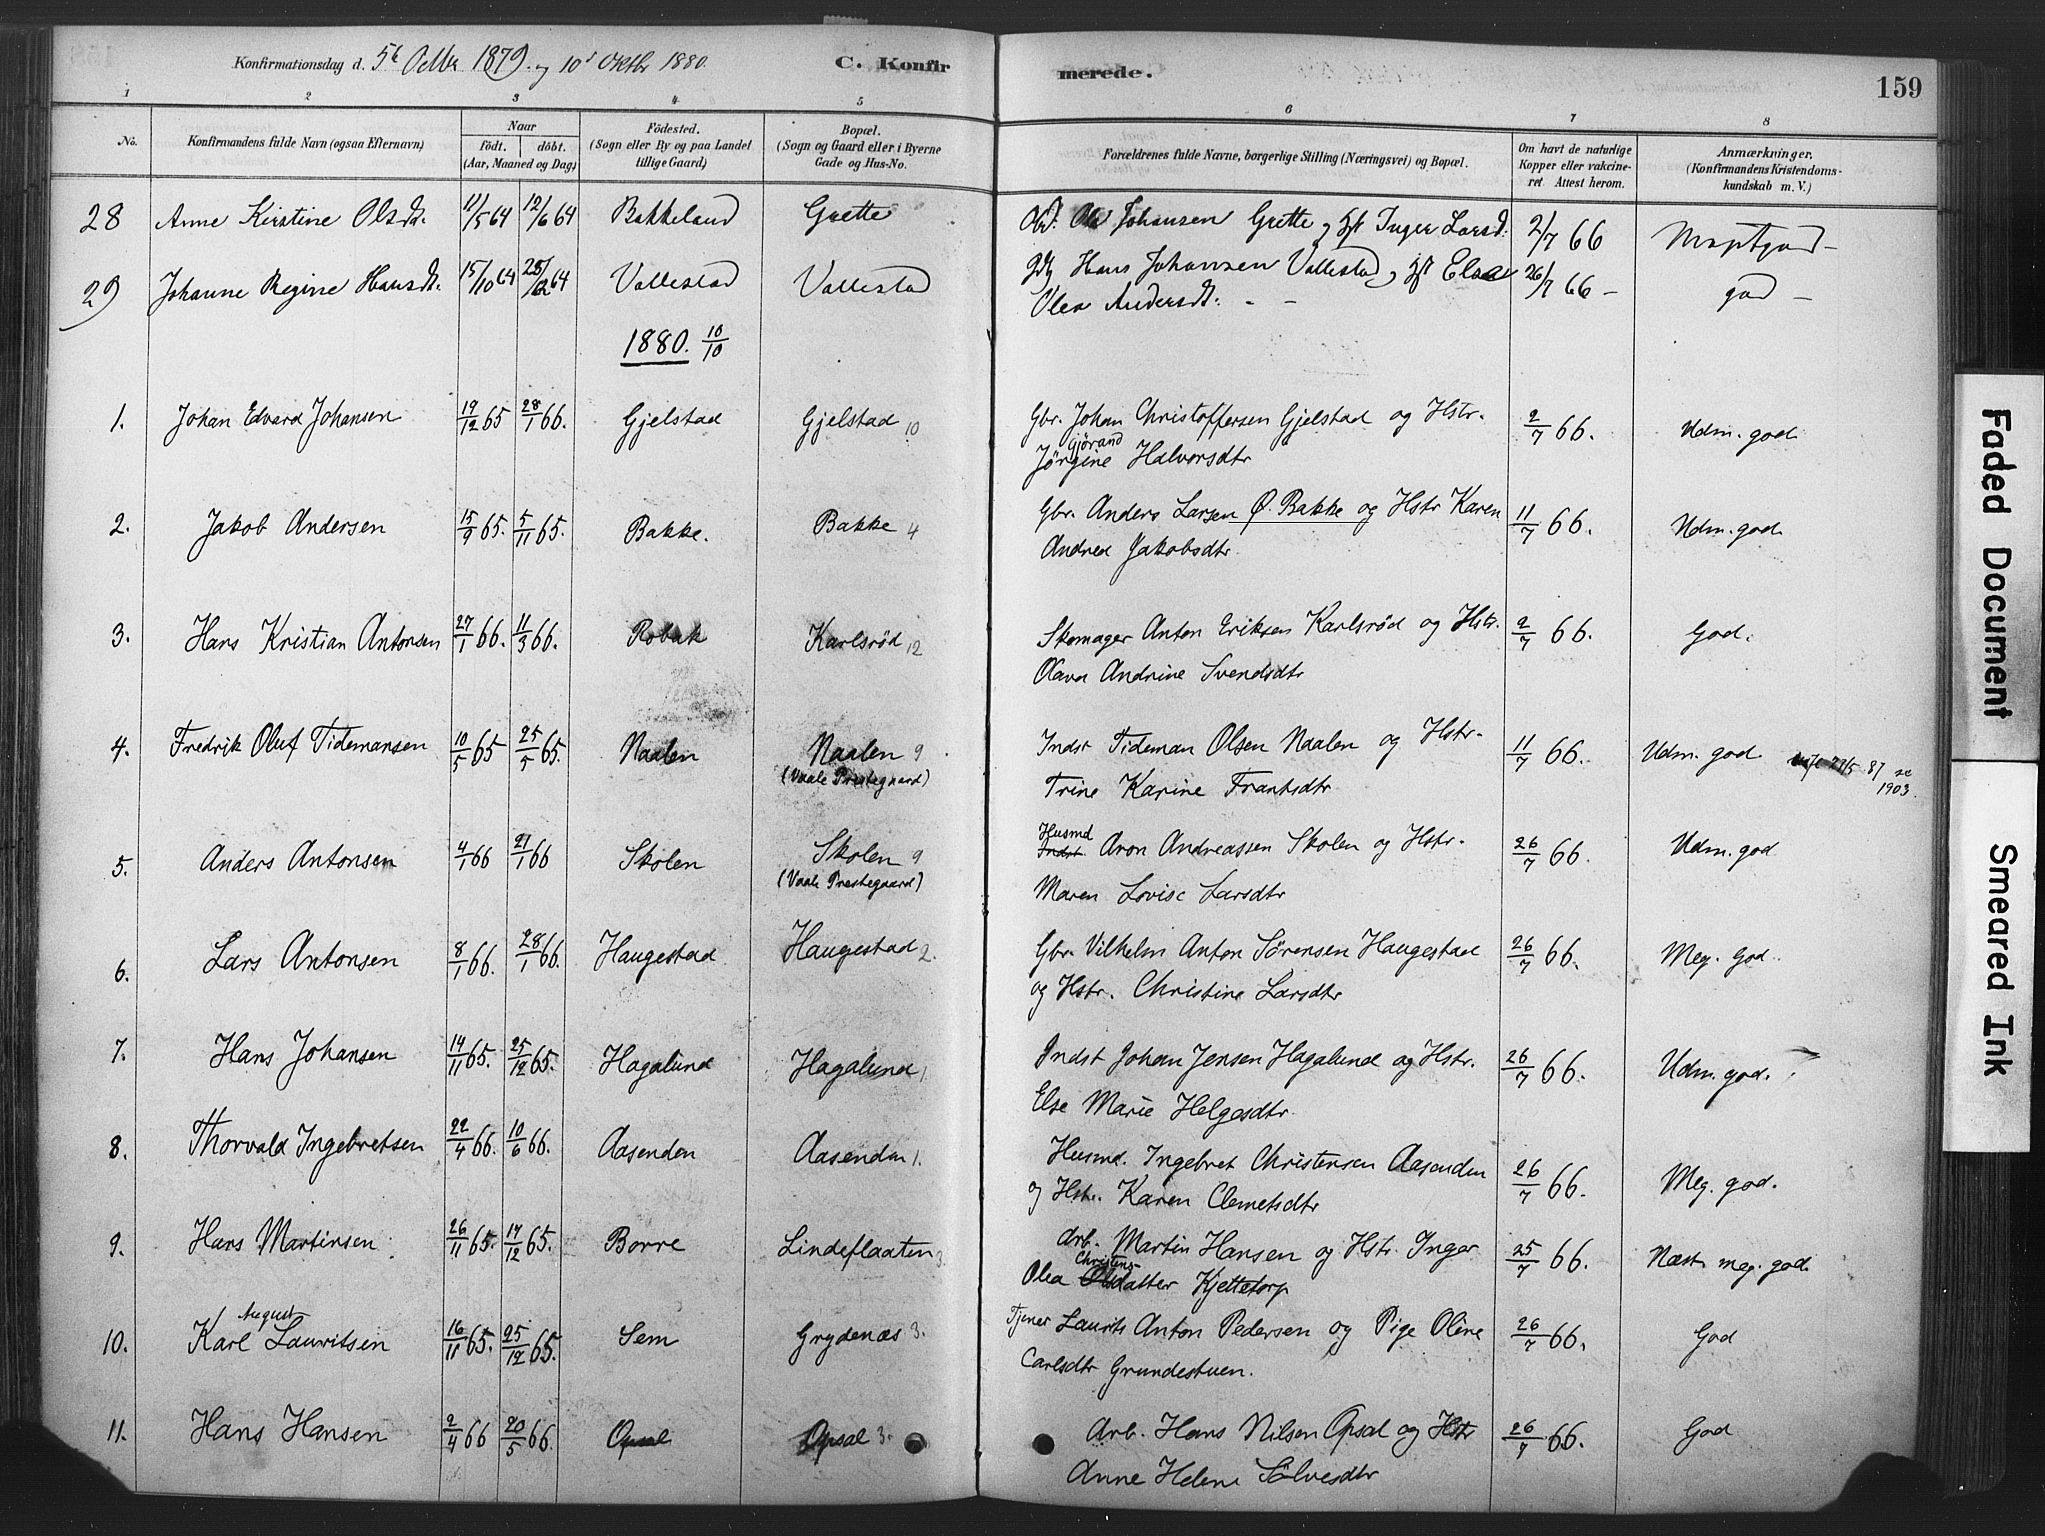 Konfirmationsdag d. 5te Octbr 1879. og 10d Oktbr 1880. C. Konfirmerede. 159
1 2 3 4 5 6 7 8
No. Konfirmandens fulde Navn (ogsaa Efternavn) Naar födt. döbt. (Aar, Maaned og Dag) Födested. (Sogn eller By og paa Landet tillige Gaard) Bopæl. (Sogn og Gaard eller i Byerne Gade og Hus-No. Forældrenes fulde Navne, borgerlige Stilling (Næringsvei) og Bopæl. Om havt de naturlige Kopper eller vakcineret Attest herom. Anmærkninger. (Konfirmandens Kristendomskundskab m. V.)
28 Anne Kirstine Olsdt. 11/5 64 12/6 64 Bakkeland Grette Ole Johansen Grette og Inger Larsd. 2/7 66
29 Johanne Regine Hansdt. 15/10 64 Vallestad Vallestad Hans Johansen Vallestad og 26/7 66 – god –
Olea Andersdt. - -
1880. 10/10
1. Johan Edvard Johansen 19/12 65 28/1 66. Gjelstad Gjelstad 10 Gbr. Johan Christoffersen Gjelstad og Hstr. 2/7 66. Udm. god.
Gjörand
Jørgine Halvorsdtr
2. Jakob Andersen 15/9 65. 5/11 65. Bakke. Bakke 4 Gbr. Anders Larsen Ø. Bakke og Hstr Karen 11/7 66. Udm. god.
Andrea Jakobsdtr.
3. Hans Kristian Antonsen 27/1 66. 11/3 66. Robak Karlsrød 12 Skomager Anton Eriksen Karlsrød og Hstr. 2/7 66. God.
Olava Andrine Svendsdtr
4. Fredrik Oluf Tidemansen 10/5 65 25/5 65. Naalen Naalen 9 Indst Tideman Olsen Naalen og Hstr. 11/7 66. Udm. god. 29/5 87 se 1903.
(Vaale Prestegaard) Trine Karine Frantsdtr
5. Anders Antonsen 4/1 66 21/1 66 Skolen Skolen 9 Husmd Indst Aron Andreassen Skolen og Hstr. 26/7 66. Udm. god
(Vaale Prestegaard) Maren Lovise Larsdtr
6. Lars Antonsen 8/1 66. 28/1 66. Haugestad Haugestad 2. Gbr. Vilhelm Anton Sörensen Haugestad 26/7 66. Meg. god.
og Hstr. Christine Larsdtr
7. Hans Johansen 14/11 65. 25/12 65. Hagalund Hagalund 1. Indst Johan Jensen Hagalund og Hstr. 26/7 66. Udm. god.
Else Marie Helgesdtr.
8. Thorvald Ingebretsen 22/4 66. 10/6 66. Aasenden Aasenden 1. Husmd. Ingebret Christensen Aasenden 26/7 66. Meg. god.
og Hstr. Karen Clemetsdtr
9. Hans Martinsen 26/11 65. 17/12 65. Borre Lindeflaaten 3. Arb. Martin Hansen og Hstr. Inger 25/7 66. Næst. meg. god.
Christens-
Olea Olsdatter Kjettetorp
August
10. Karl Lauritsen 16/11 65. 25/12 65. Sem Grydenæs 3. Tjener Laurits Anton Pedersen og Pige Oline 26/7 66. God
Carlsdtr Grundestuen.
11. Hans Hansen 2/4 66 20/5 66. Opsal Opsal 3. Arb. Hans Nilsen Opsal og Hstr 26/7 66. God
Anne Helene Sölvesdtr
Faded Document
Smeared Ink